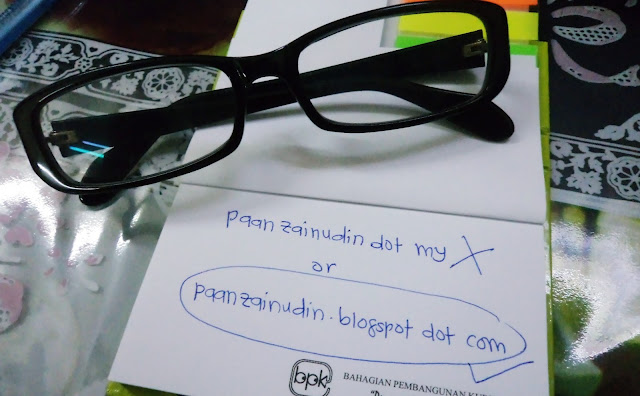 paan zainudin dot my X
or
paanzainudin.blogspot dot com
bpk
BAHAGIAN PEMBANGUNAN